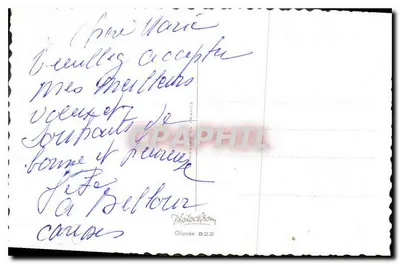 Chère Marie
Veuillez accepter
mes meilleurs
voeux et
souhaits de
bonne et heureuse
fête
CPAPHIL
Photochrom
Glacée 822